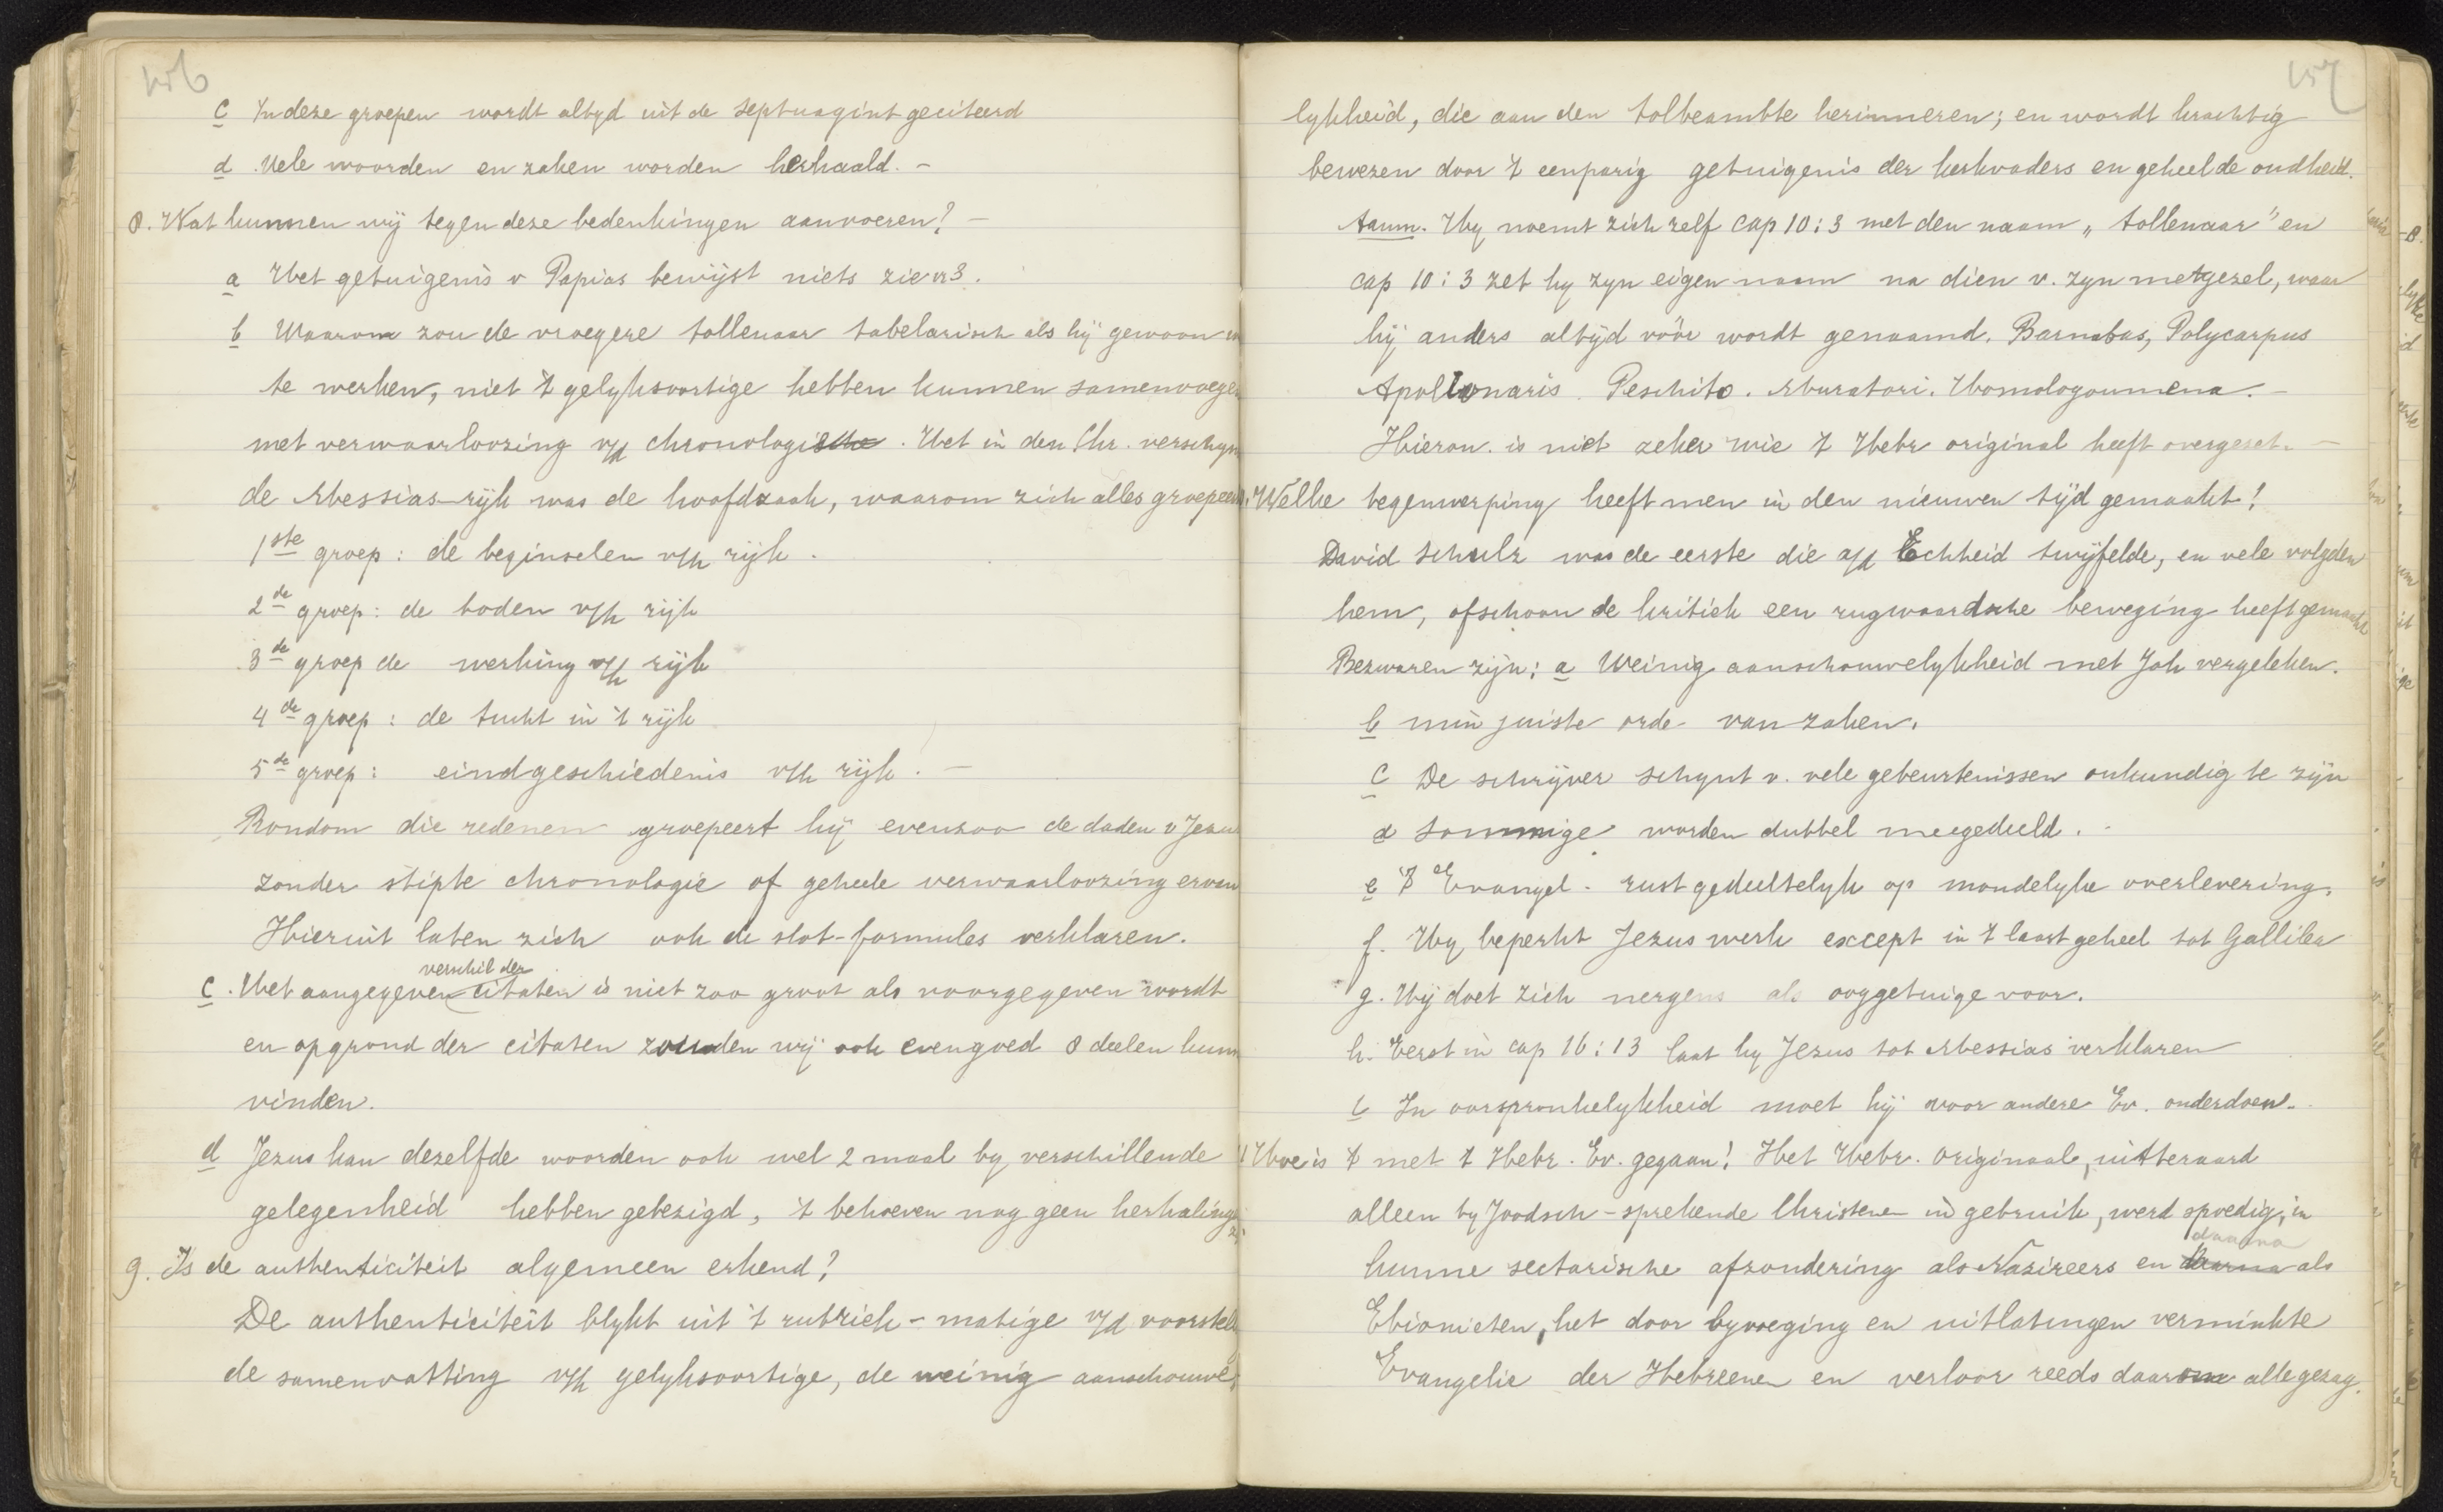 156
c In deze groepen wordt altyd uit de Septuagint geciteerd
d. Vele woorden en zaken worden herhaald. –
8. Wat kunnen wij tegen deze bedenkingen aanvoeren? –
a Het getuigenis v Papias bewijst niets zie vr 3.
b Waarom zou de vroegere tollenaar tabelarisch als hij gewoon
te werken, niet 't gelyksoortige hebben kunnen samenvoegen
met verwaarloozing v/d chronologie. Het in den Chr. verschyn
de Messias-rijk was de hoofdzaak, waarom zich alles groepeer
1ste groep: de beginselen v/h rijk.
2de groep: de boden v/h rijk
3de groep de werking v/h rijk
4de groep: de tucht in 't rijk
5de groep: eindgeschiedenis v/h rijk. –
Rondom die redenen groepeert hij evenzoo de daden v Jezus
zonder stipte chronologie of geheele verwaarloozing ervan
Hieruit laten zich ook de slot-formules verklaren.
c. Het aangegeven verschil der citaten is niet zoo groot als voorgegeven wordt
en op grond der citaten zouden wij ook evengoed 8 deelen kunn
vinden.
d Jezus kan dezelfde woorden ook wel 2 maal by verschillende
gelegenheid hebben gebezigd, 't behoeven nog geen herhaling
9. Is de authenticiteit algemeen erkend?
De authenticiteit blykt uit 't rubriek-matige v/d voorstell
de samenvatting v/h gelyksoortige, de weinig aanschouwe
157
lykheid, die aan den tolbeambte herinneren; en wordt krachtig
bewezen door 't eenparig getuigenis der kerkvaders en geheel de oudheid.
Aanm. Hy noemt zich zelf cap 10:3 met den naam „tollenaar" en
cap 10:3 zet hy zyn eigen naam na dien v. zyn metgezel, waar
hij anders altyd vóór wordt genaamd. Barnabas, Polycarpus
Apollonaris. Peschito. Muratori. Homologoumena. –
Hieron. is niet zeker wie 't Hebr original heeft overgezet. –
Welke tegenwerping heeft men in den nieuwen tijd gemaakt?
David Schulz was de eerste die a/d Echheid twijfelde, en vele volgden
hem, ofschoon de kritiek een rugwaardsche beweging heeft gemaakt
Bezwaren zijn: a Weinig aanschouwelykheid met Joh vergeleken.
b min juiste orde van zaken.
c De schrijver schynt v. vele gebeurtenissen onkundig te zijn
d Sommige worden dubbel meegedeeld. –
e 't Evangel. rust gedeeltelyk op mondelyke overlevering.
f. Hy beperkt Jezus werk except in 't laast geheel tot Gallilea
g. Hij doet zich nergens als ooggetuige voor.
h. Eerst in cap 16:13 laat hy Jezus tot Messias verklaren
i In oorspronkelykheid moet hij voor andere Ev. onderdoen.
Hoe is 't met 't Hebr. Ev. gegaan? Het Hebr. originaal, uitteraard
alleen by Joodsch-sprekende Christenen in gebruik, werd spoedig, in
hunne sectarische afzondering als Nazireers en daarna als
Ebionieten, het door byvoeging en uitlatingen verminkte
Evangelie der Hebreenen en verloor reeds daarom alle gezag.